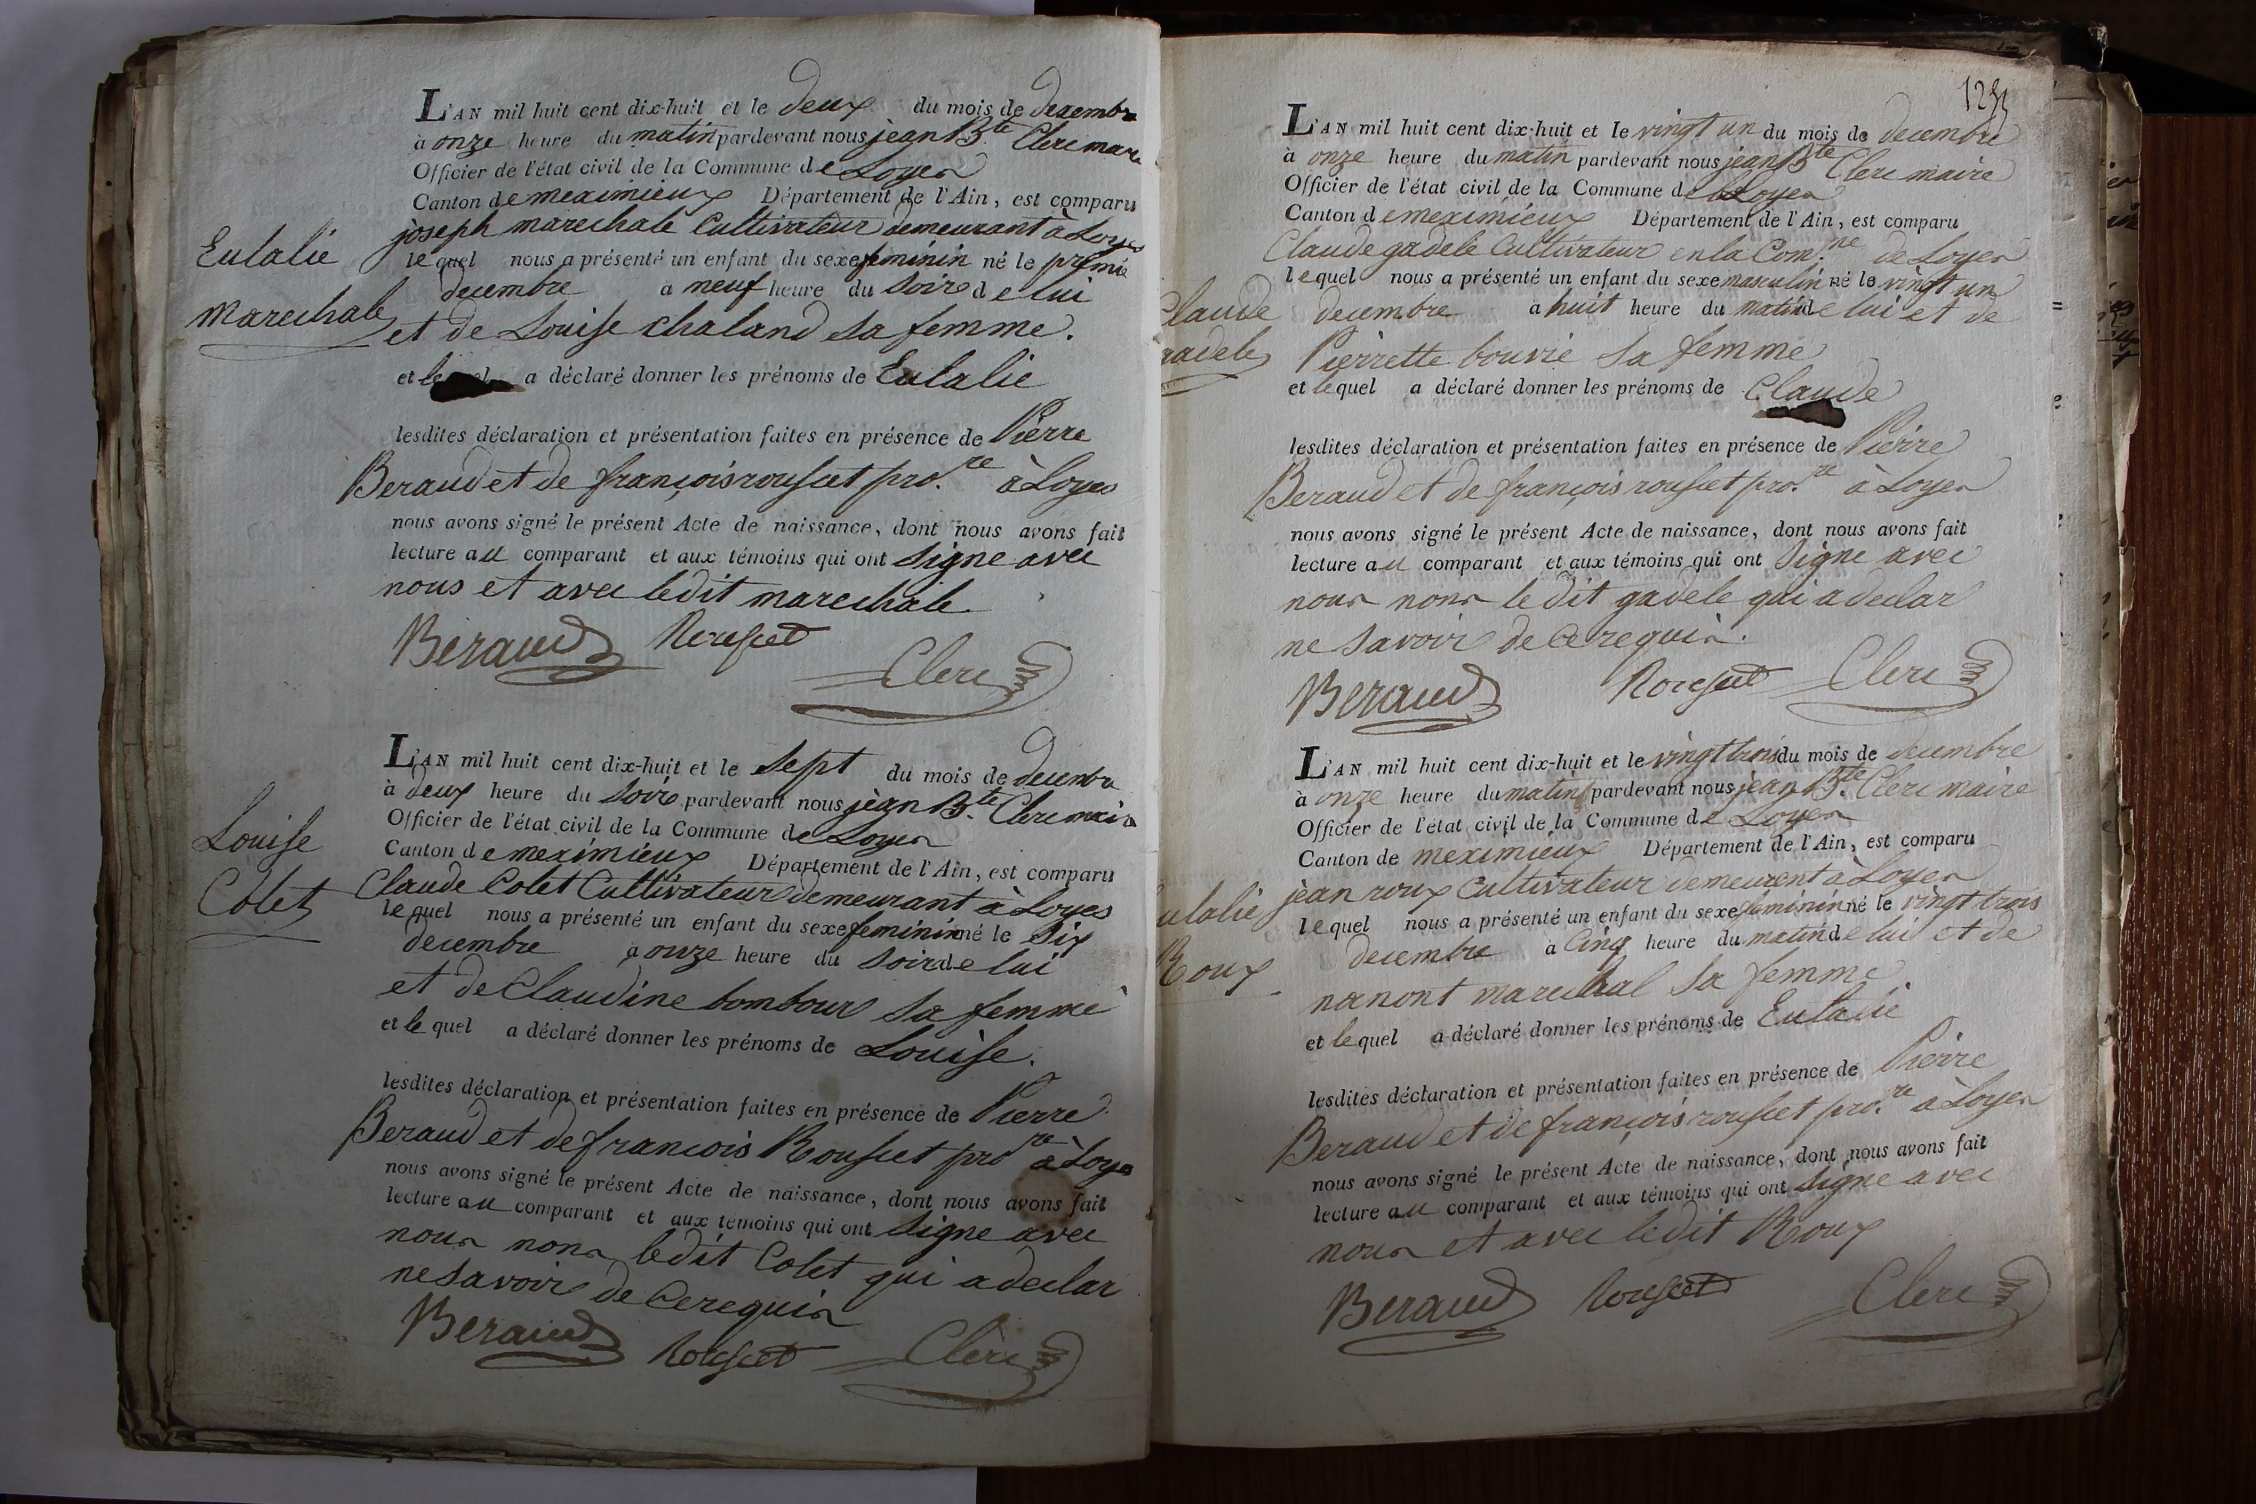 L'AN mil huit cent dix-huit et le deux du mois de decembre
à onze heure du matin pardevant nous jean B.te Clerc maire
Officier de l'état civil de la Commune de Loyes
Canton de meximieux Département de l'Ain, est comparu
joseph marechale Cultivateur demeurant à Loyes
Eulalie
lequel nous a présenté un enfant du sexe feminin né le premie
decembre a neuf heure du Soir de lui
Marechale
et de Louise chaland sa femme.
et lequel a déclaré donner les prénoms de Eulalie
lesdites déclaration et présentation faites en présence de Pierre
Beraud et de françois rousset pro.re à Loyes
nous avons signé le présent Acte de naissance, dont nous avons fait
lecture au comparant et aux témoins qui ont Signe avec
nous et avec ledit marechale
Beraud Rousset
Clerc
L'AN mil huit cent dix-huit et le Sept du mois de decembre
à deux heure du Soir pardevant nous jean B.te Clerc maire
Officier de l'état civil de la Commune de Loyes
Louise
Canton de meximieux Département de l'Ain, est comparu
Claude Colet Cultivateur demeurant à Loyes
Colet
lequel nous a présenté un enfant du sexe feminin né le Six
decembre a onze heure du Soir de lui
et de Claudine bombour sa femme
et le quel a déclaré donner les prénoms de Louise.
lesdites déclaration et présentation faites en présence de Pierre
Beraud et de francois Rousset pro re à Loyes
nous avons signé le présent Acte de naissance, dont nous avons fait
lecture au comparant et aux témoins qui ont Signe avec
nous nons ledit Colet qui a declar
ne Savoir de Ce requis
Beraud Rousset Clerc
L'AN mil huit cent dix-huit et le vingt un du mois de decembre
à onze heure du matin pardevant nous jean B.te Clerc maire
Officier de l'état civil de la Commune de Loyes
Canton de meximieux Département de l'Ain, est comparu
Claude gadele Cultivateur en la Com.ne de Loyes
lequel nous a présenté un enfant du sexe masculin né le vingt un
Claude
decembre a huit heure du matin de lui et de
gadele
Pierrette bouvie sa femme
et lequel a déclaré donner les prénoms de Claude
lesdites déclaration et présentation faites en présence de Pierre
Beraud et de françois rousset pro.re à Loyes
nous avons signé le présent Acte de naissance, dont nous avons fait
lecture au comparant et aux témoins qui ont Signe avec
nous nons le dit gadele qui a declar
ne Savoir de Ce requis.
Beraud Rousset Clerc
L'AN mil huit cent dix-huit et le vingt trois du mois de decembre
à onze heure du matin pardevant nous jean B.te Clerc maire
Officier de l'état civil de la Commune de Loyes
Canton de meximieux Département de l'Ain, est comparu
jean roux Cultivateur demeurent à Loyes
Eulalie
lequel nous a présenté un enfant du sexe feminin né le vingt trois
decembre à Cinq heure du matin de lui et de
Roux
marechal sa femme
et lequel a déclaré donner les prénoms de Eulalie
lesdites déclaration et présentation faites en présence de Pierre
Beraud et de françois rousset pro.re à Loyes
nous avons signé le présent Acte de naissance, dont nous avons fait
lecture au comparant et aux témoins qui ont Signe avec
nous et avec ledit Roux
Beraud Rousset Clerc